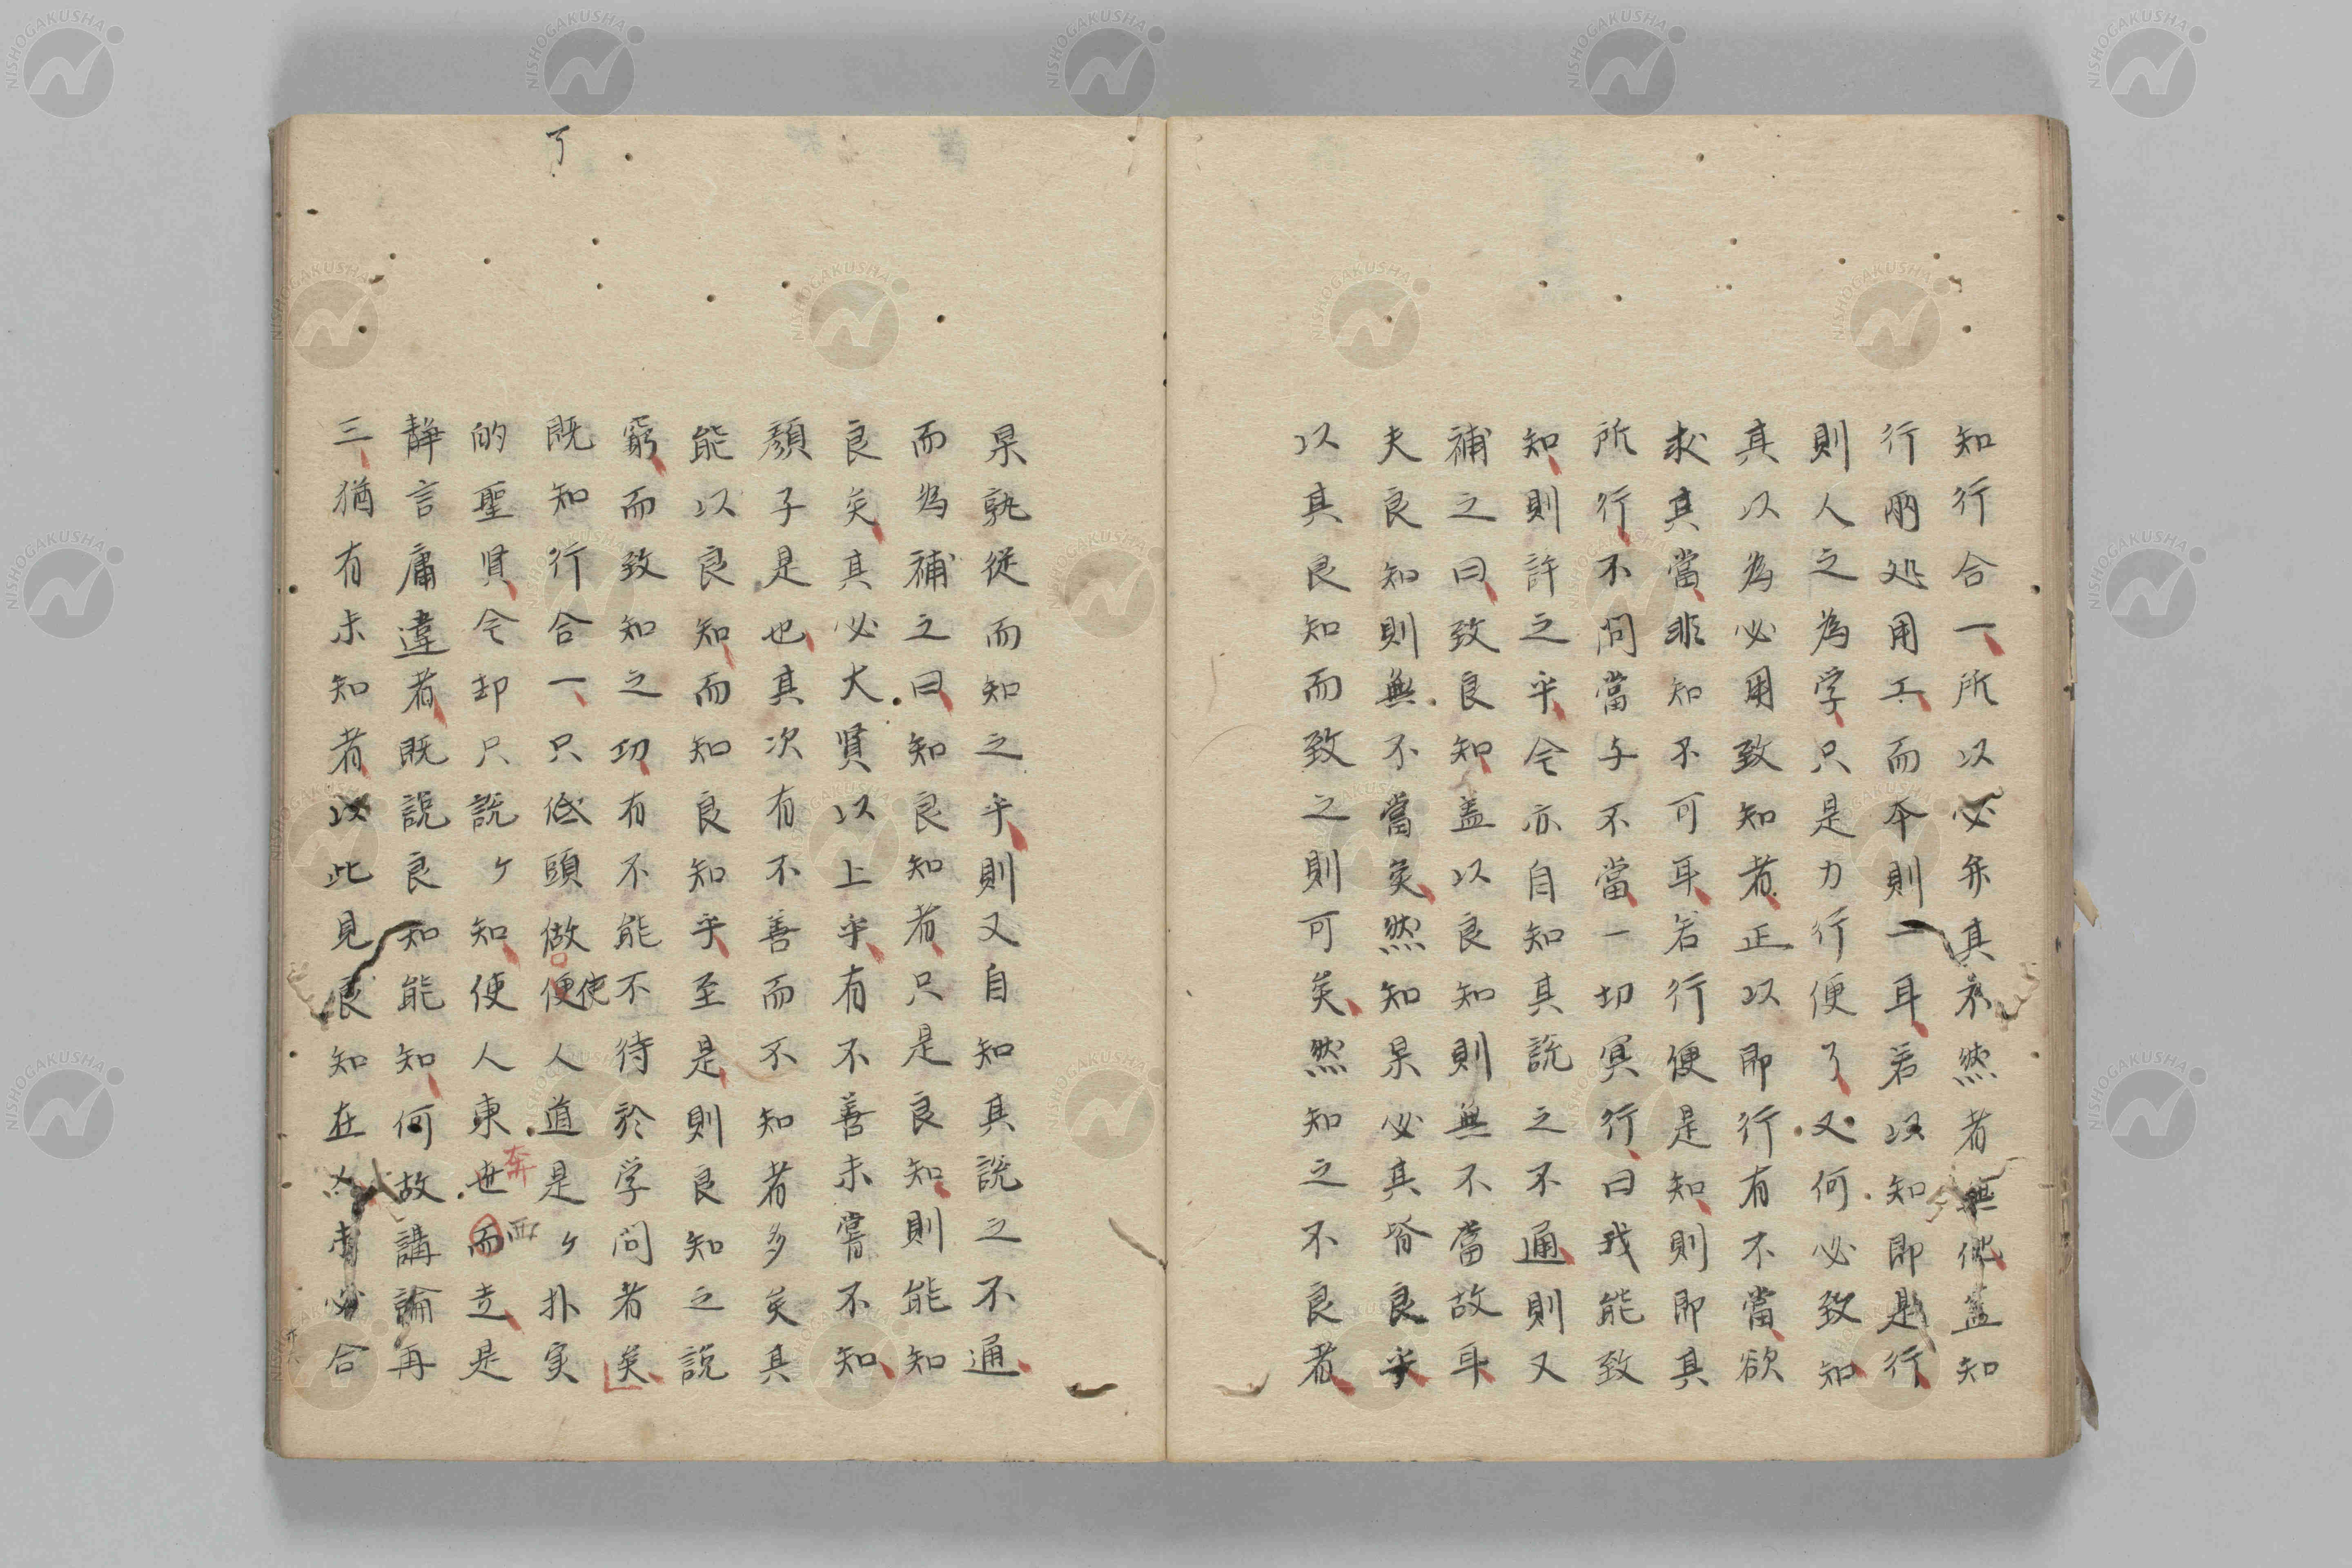 知行合一所以必弁其不然者無他蓋知
行兩処用工而本則一耳若以知即是行
則人之為学只是力行便了又何必致知
其以為必用致知者正以即行有不當欲
求其當非知不可耳若行便是知則即其
所行不問當与不當一切冥行曰我能致
知則許之乎今亦自知其説之不通則又
補之曰致良知盖以良知則無不當故耳
夫良知則無不當矣然知果必其皆良乎
以其良知而致之則可矣然知之不良者
果孰從而知之乎則又自知其説之不通
而為補之曰知良知者只是良知則能知
良矣其必大賢以上乎有不善未嘗不知
顏子是也其次有不善而不知者多矣其
能以良知而知良知乎至是則良知之説
窮而致知之功有不能不待於学問者矣
既知行合一只低頭做便使人道是ケ朴実
的聖賢今却只説ケ知使人東奔世而西走是
静言庸違者既説良知能知何故講論再
三猶有未知者以此見良知在人未必合
了
NISHOGAKUSHA